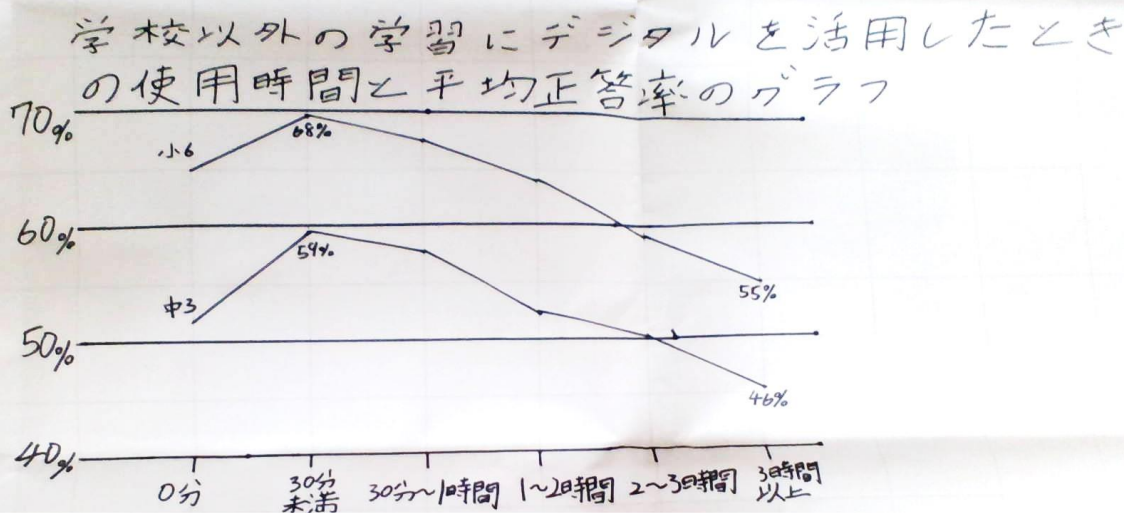 学校以外の学習にデジタルを活用したとき
の使用時間と平均正答率のグラフ
70%
小6
68%
60%
59%
中3
55%
50%
46%
40%
0分
30分
未満
30分～1時間
1～2時間
2～3時間
3時間
以上